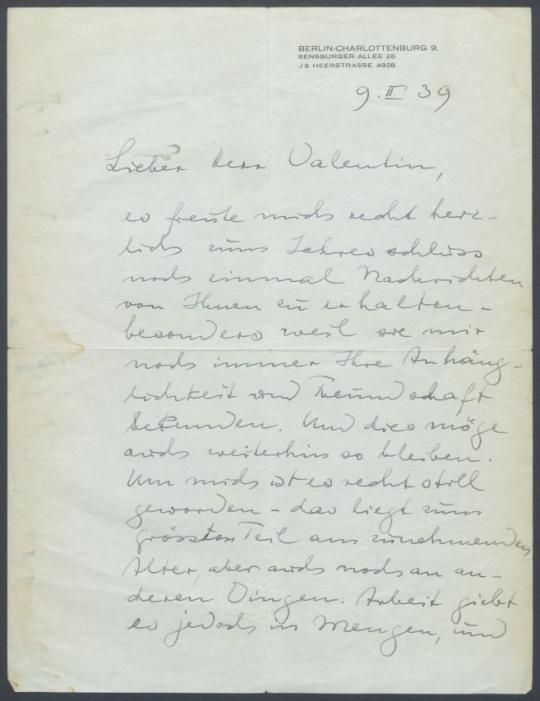 BERLIN-CHARLOTTENBURG 9,
SENSBURGER ALLEE 26
J9 HEERSTRASSE 4928
9. II 39
Lieber Herr Valentin,
es freute mich recht herz-
lich zum Jahresschluss
noch einmal Nachrichten
von Ihnen zu erhalten -
besonders weil sie mir
noch immer Ihre Anhäng-
lichkeit und Freundschaft
bekunden. Und dies möge
auch weiterhin so bleiben.
Um mich ist es recht still
geworden - das liegt zum
grössten Teil am zunehmenden
Alter, aber auch noch an an-
deren Dingen. Arbeit giebt
es jedoch in Mengen, und